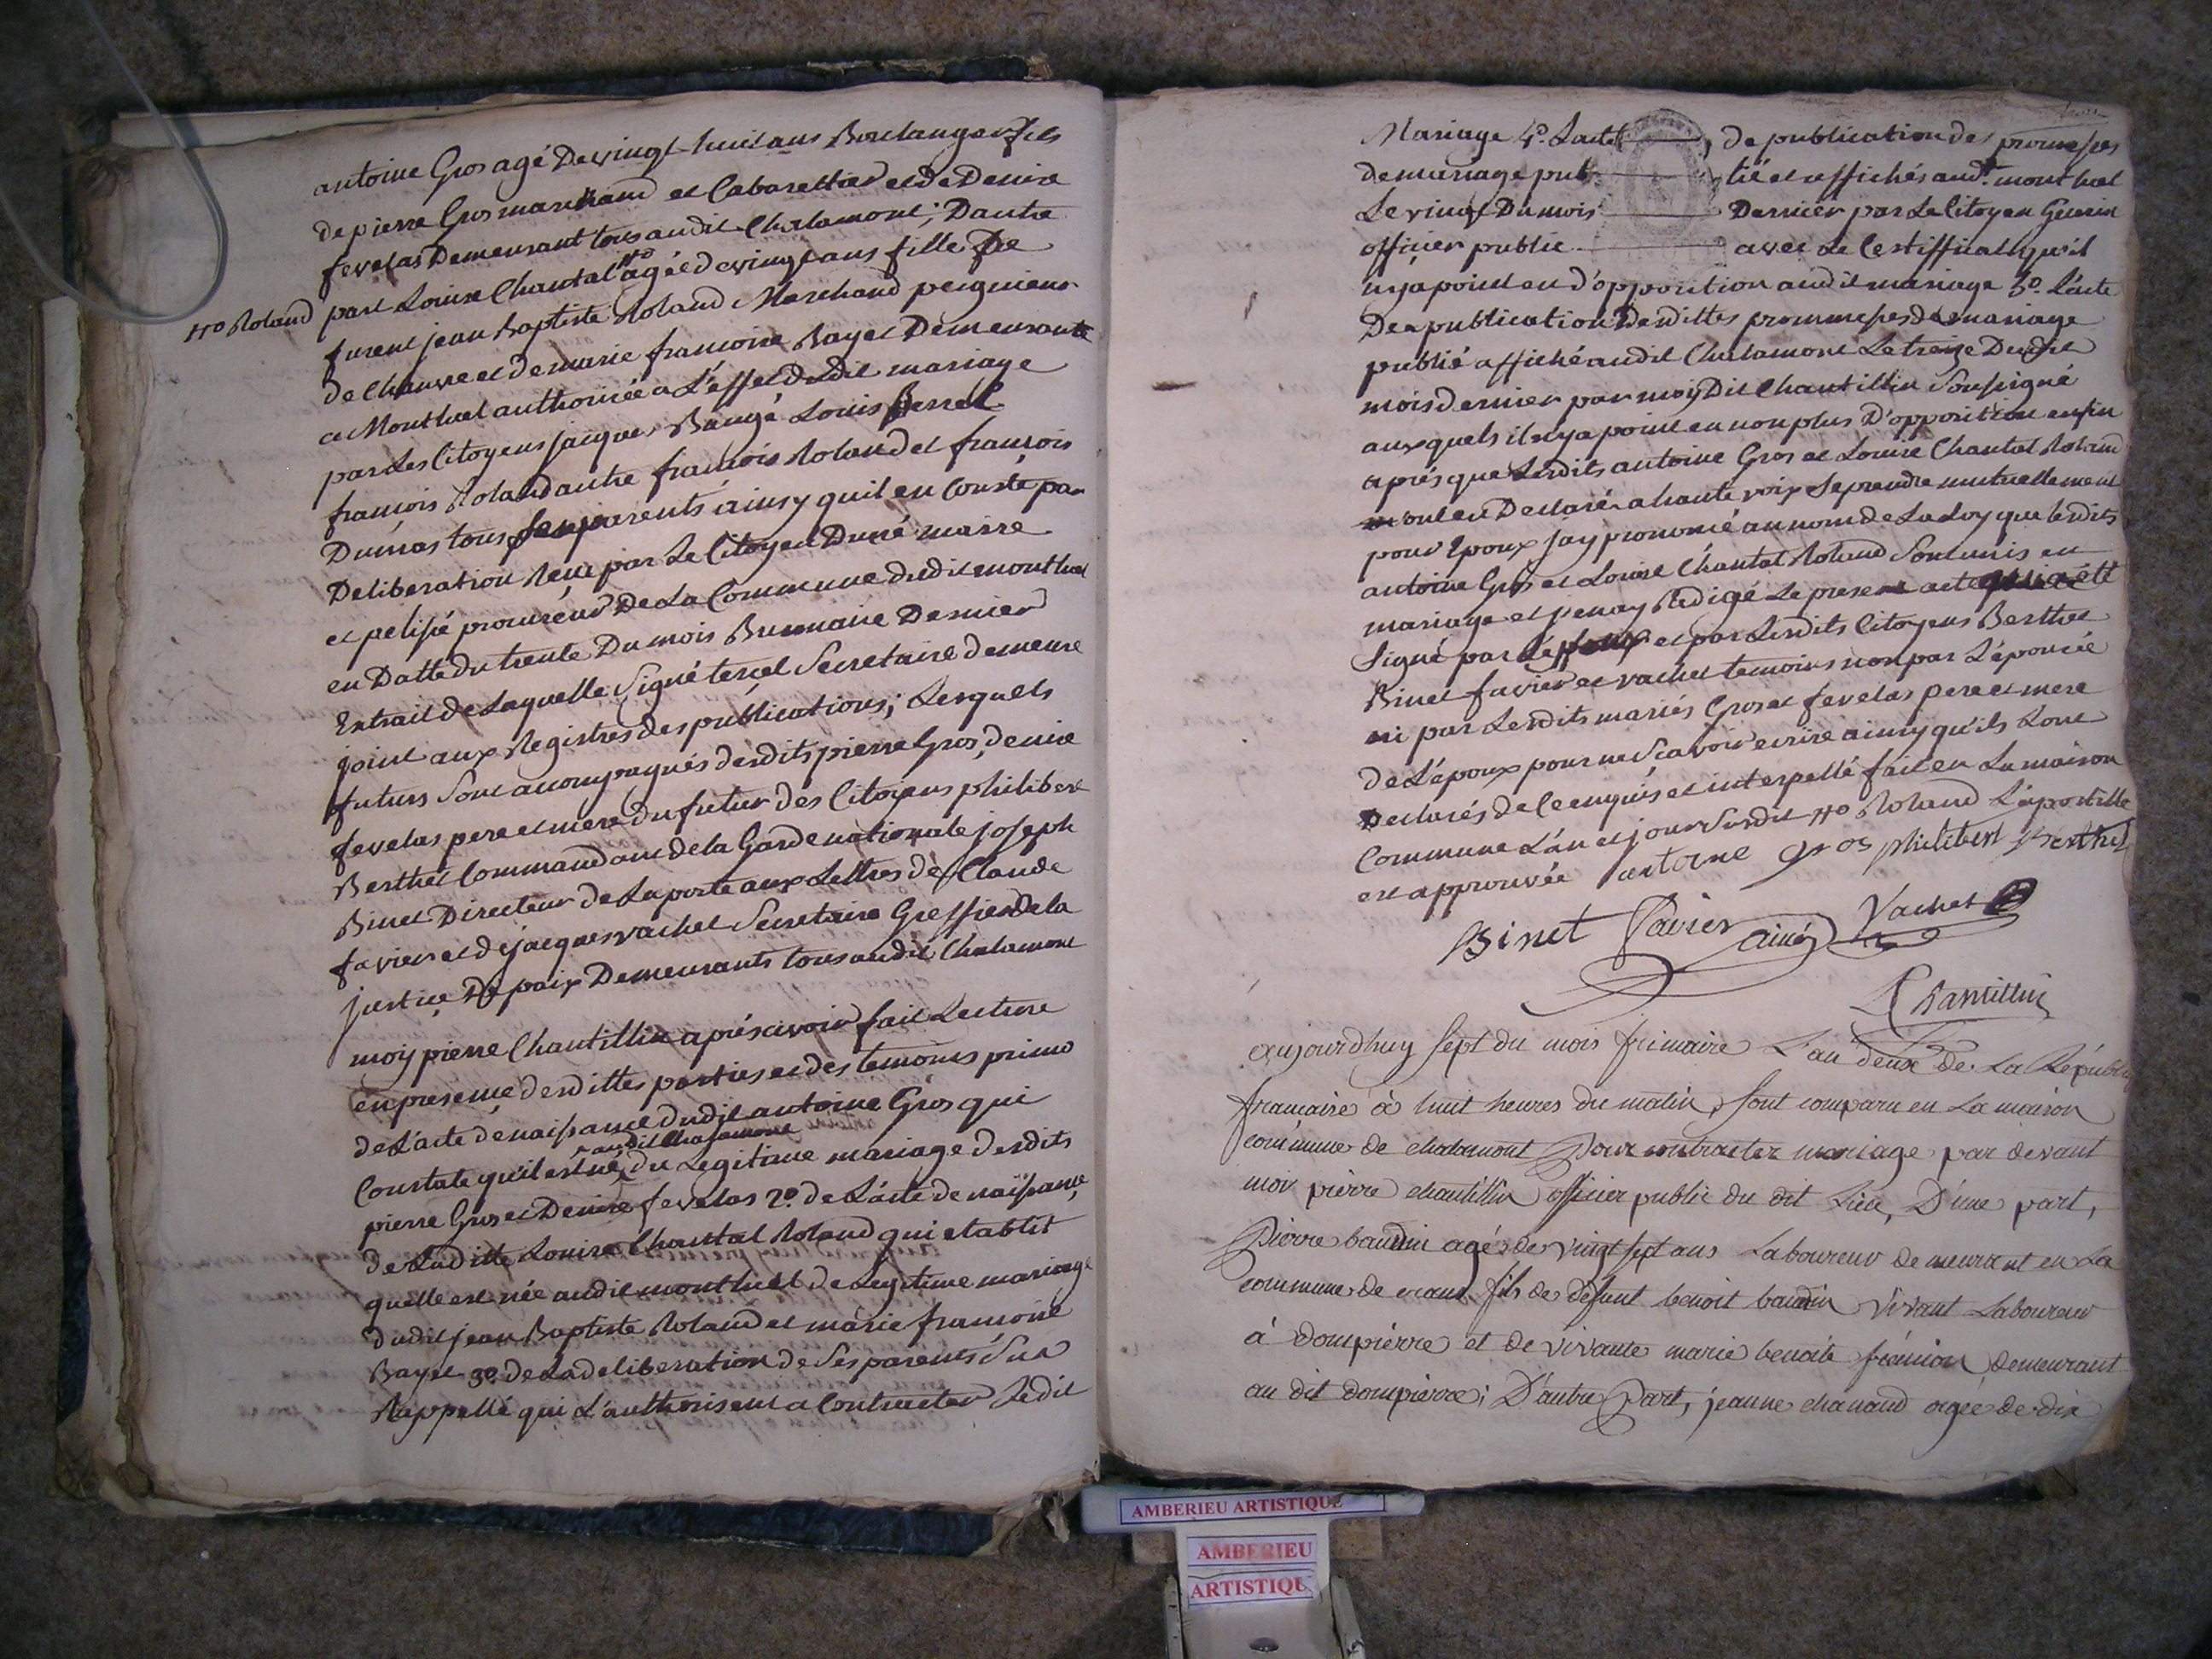 antoine Gros agé De vingt huit ans Boulanger fils
de pierre Gros marchand et Cabarettier et de Denise
fevelas Demeurant tous audit Chalamont; Dautre
part Louise Chantal #o agée de vingt ans fille De
#o Roland
furent jean Baptiste Roland Marchand peigneur
de Chanvre et de marie francoise Bayet Demeurante
a Montluel authorisée a L'effet dudit mariage
par Les Citoyens jacques Baugé Louis
françois Roland autre françois Roland et françois
Dumas tous parents ainsy quil en Conste par
Deliberation Reçue par Le Citoyen Duné maire
et pelissé procureur De La Commune dudit montluel
en Datte du trente Du mois Brumaire Dernier
Extrait de Laquelle Signé tercet Secretaire demeure
joint aux Registres des publications; Lesquels
futurs Sont acompagnés desdits pierre Gros, denise
fevelas pere et mere du futur des Citoyens philibert
Berthet Commandant de la Garde nationale joseph
Binet Directeur de La poste aux Lettres de Claude
favier et de jacques vachet Secretaire Greffier de la
justice De paix Demeurants tous audit Chalamont
moy pierre Chantillin aprés avoir fait Lecture
en presence desdittes parties et des temoins primo
de L'acte de naissance dudit antoine Gros qui
audit Chalamont
Constate qu'il est né, du Legitime mariage desdits
pierre Gros et Denise fevelas 2o. de L'acte de naissance
de Laditte Louise Chantal Roland qui etablit
quelle est née audit montluel de Legitime mariage
dudit jean Baptiste Roland et marie françoise
Bayet 3o. de La deliberation de Ses parents Sus
Rappellé qui L'authorisent a Contracter Ledit
Mariage 4o. L'acte de publication des promesses
de mariage pub lié et affichés audt. montluel
Le vingt Du mois Dernier par Le Citoyen Guerin
officier public avec Le Certifficat qu'il
n'y a point eu d'opposition audit mariage 5o. L'acte
De publication Desdittes prommesses de mariage
publié affiché audit Chalamont Le treize Dudit
mois dernier par moy Dit Chantillin Soussigné
auxquels il n'y a point eu non plus D'opposition enfin
aprés que Lesdits antoine Gros et Louise Chantal Roland
ont eu Declaré a haute voix Se prendre mutuellement
pour Epoux jay prononcé au nom de La Loy que Lesdits
antoine Gros et Louise Chantal Roland Sont unis en
mariage et j'en ay Redigé Le present acte
Signé par L'époux et par Lesdits Citoyens Berthet
Binet favier et vachet temoins non par L'épousée
ni par Lesdits mariés Gros et fevelas pere et mere
de L'époux pour ne Scavoir ecrire ainsy qu'ils L'ont
Declarés de Ce enquis et interpellé fait en La maison
Commune L'an et jour Susdit #o Roland L'apostille
est approuvée antoine gros philibert Berthet
Binet Favier ainé Vachet
Chantillin
aujourdhuy sept du mois frimaire L'an deux de La Républi
francaise à huit heures du matin, sont comparu en La maison
commune de chalamont Pour contracter mariage par devant
moi pierre chantillin officier public du dit Lieu, D'une part,
Pierre baudin agé de vingt sept ans Laboureur demeurant en La
commune de crans fils de défunt benoit baudin vivant Laboureur
à dompierre et de vivante marie benoite demeurant
au dit dompierre; D'autre Part, jeanne chanaud agée de dix
AMBERIEU ARTISTIQUE
AMBERIEU
ARTISTIQU